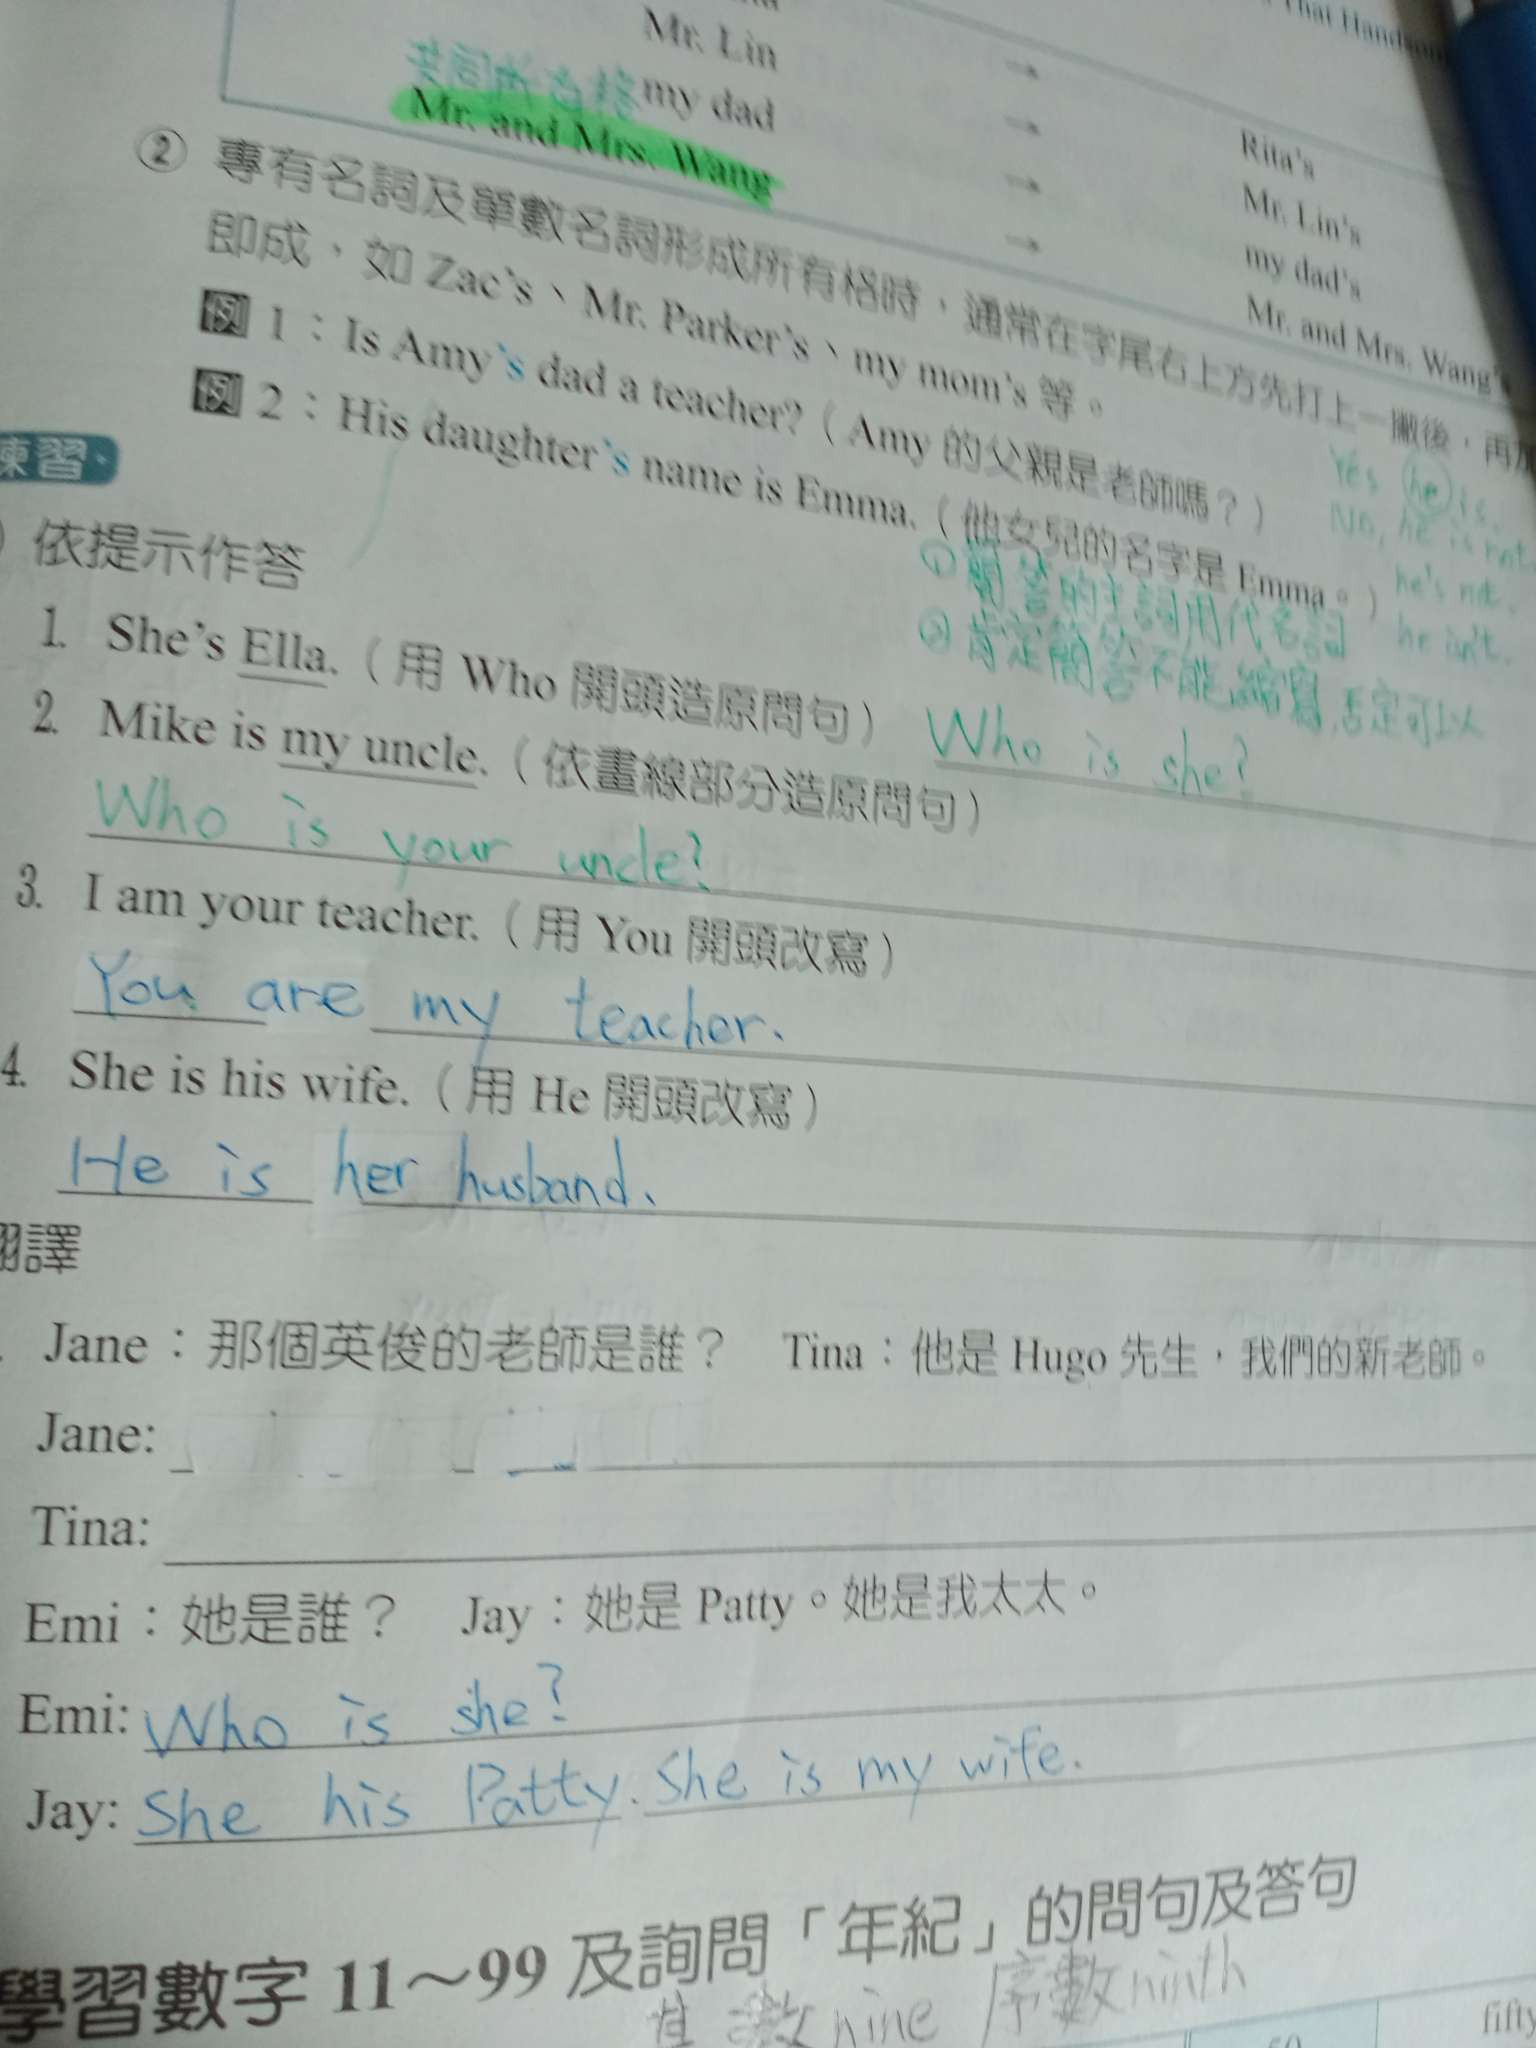 That Handsom
Mr. Lin → Rita's
共同所有格 my dad → Mr. Lin's
Mr. and Mrs. Wang → my dad's
→ Mr. and Mrs. Wang's
② 專有名詞及單數名詞形成所有格時，通常在字尾右上方先打上一撇後，再加
即成，如 Zac's、Mr. Parker's、my mom's 等。
例 1：Is Amy's dad a teacher?（Amy 的父親是老師嗎？）
Yes he is.
No, he is not.
he's not.
he isn't.
例 2：His daughter's name is Emma.（他女兒的名字是 Emma。）
① 簡答的主詞用代名詞
② 肯定簡答不能縮寫,否定可以
練習
依提示作答
1. She's Ella.（用 Who 開頭造原問句） Who is she?
2. Mike is my uncle.（依畫線部分造原問句）
Who is your uncle?
3. I am your teacher.（用 You 開頭改寫）
You are my teacher.
4. She is his wife.（用 He 開頭改寫）
He is her husband.
翻譯
Jane：那個英俊的老師是誰？ Tina：他是 Hugo 先生，我們的新老師。
Jane:
Tina:
Emi：她是誰？ Jay：她是 Patty。她是我太太。
Emi: Who is she?
Jay: She his Patty. She is my wife.
學習數字 11～99 及詢問「年紀」的問句及答句
數 nine 序數 ninth
50 fifty